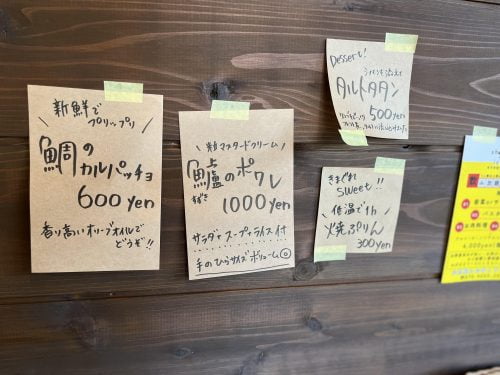 新鮮で
プリップリ
鯛の
カルパッチョ
600yen
香り高いオリーブオイルで
どうぞ!!
粒マスタードクリーム
鱸のポワレ
すずき
1000yen
サラダ スープ ライス付
手のひらサイズボリューム◎
Dessert!
タルトタタン
500yen
きまぐれ
sweet!!
低温で1h
焼ぷりん
300yen